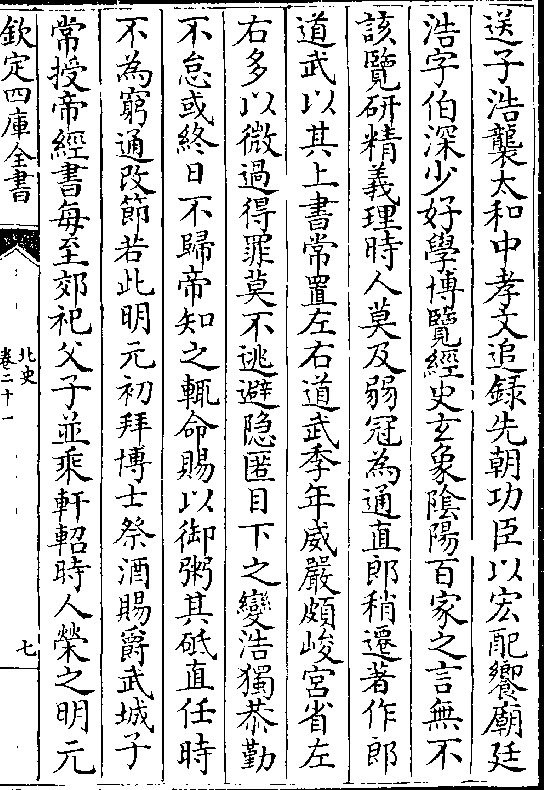 送子浩襲太和中孝文追録先朝功臣以宏配饗廟廷
浩字伯深少好學博覽經史𤣥象陰陽百家之言無不
該覽研精義理時人莫及弱冠為通直郎稍遷著作郎
道武以其上書常置左右道武季年威嚴頗峻宮省左
右多以微過得罪莫不逃避隐匿目下之變浩獨恭勤
不怠或終日不歸帝知之輒命賜以御粥其砥直任時
不為窮通改節若此明元初拜博士祭酒賜爵武城子
常授帝經書每至郊祀父子並乘軒軺時人榮之明元
欽定四庫全書
北史
卷二十一
七